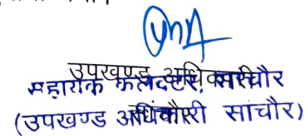 उपखण्ड अधिकारी
सहायक कलक्टर, सांचौर
(उपखण्ड अधिकारी सांचौर)